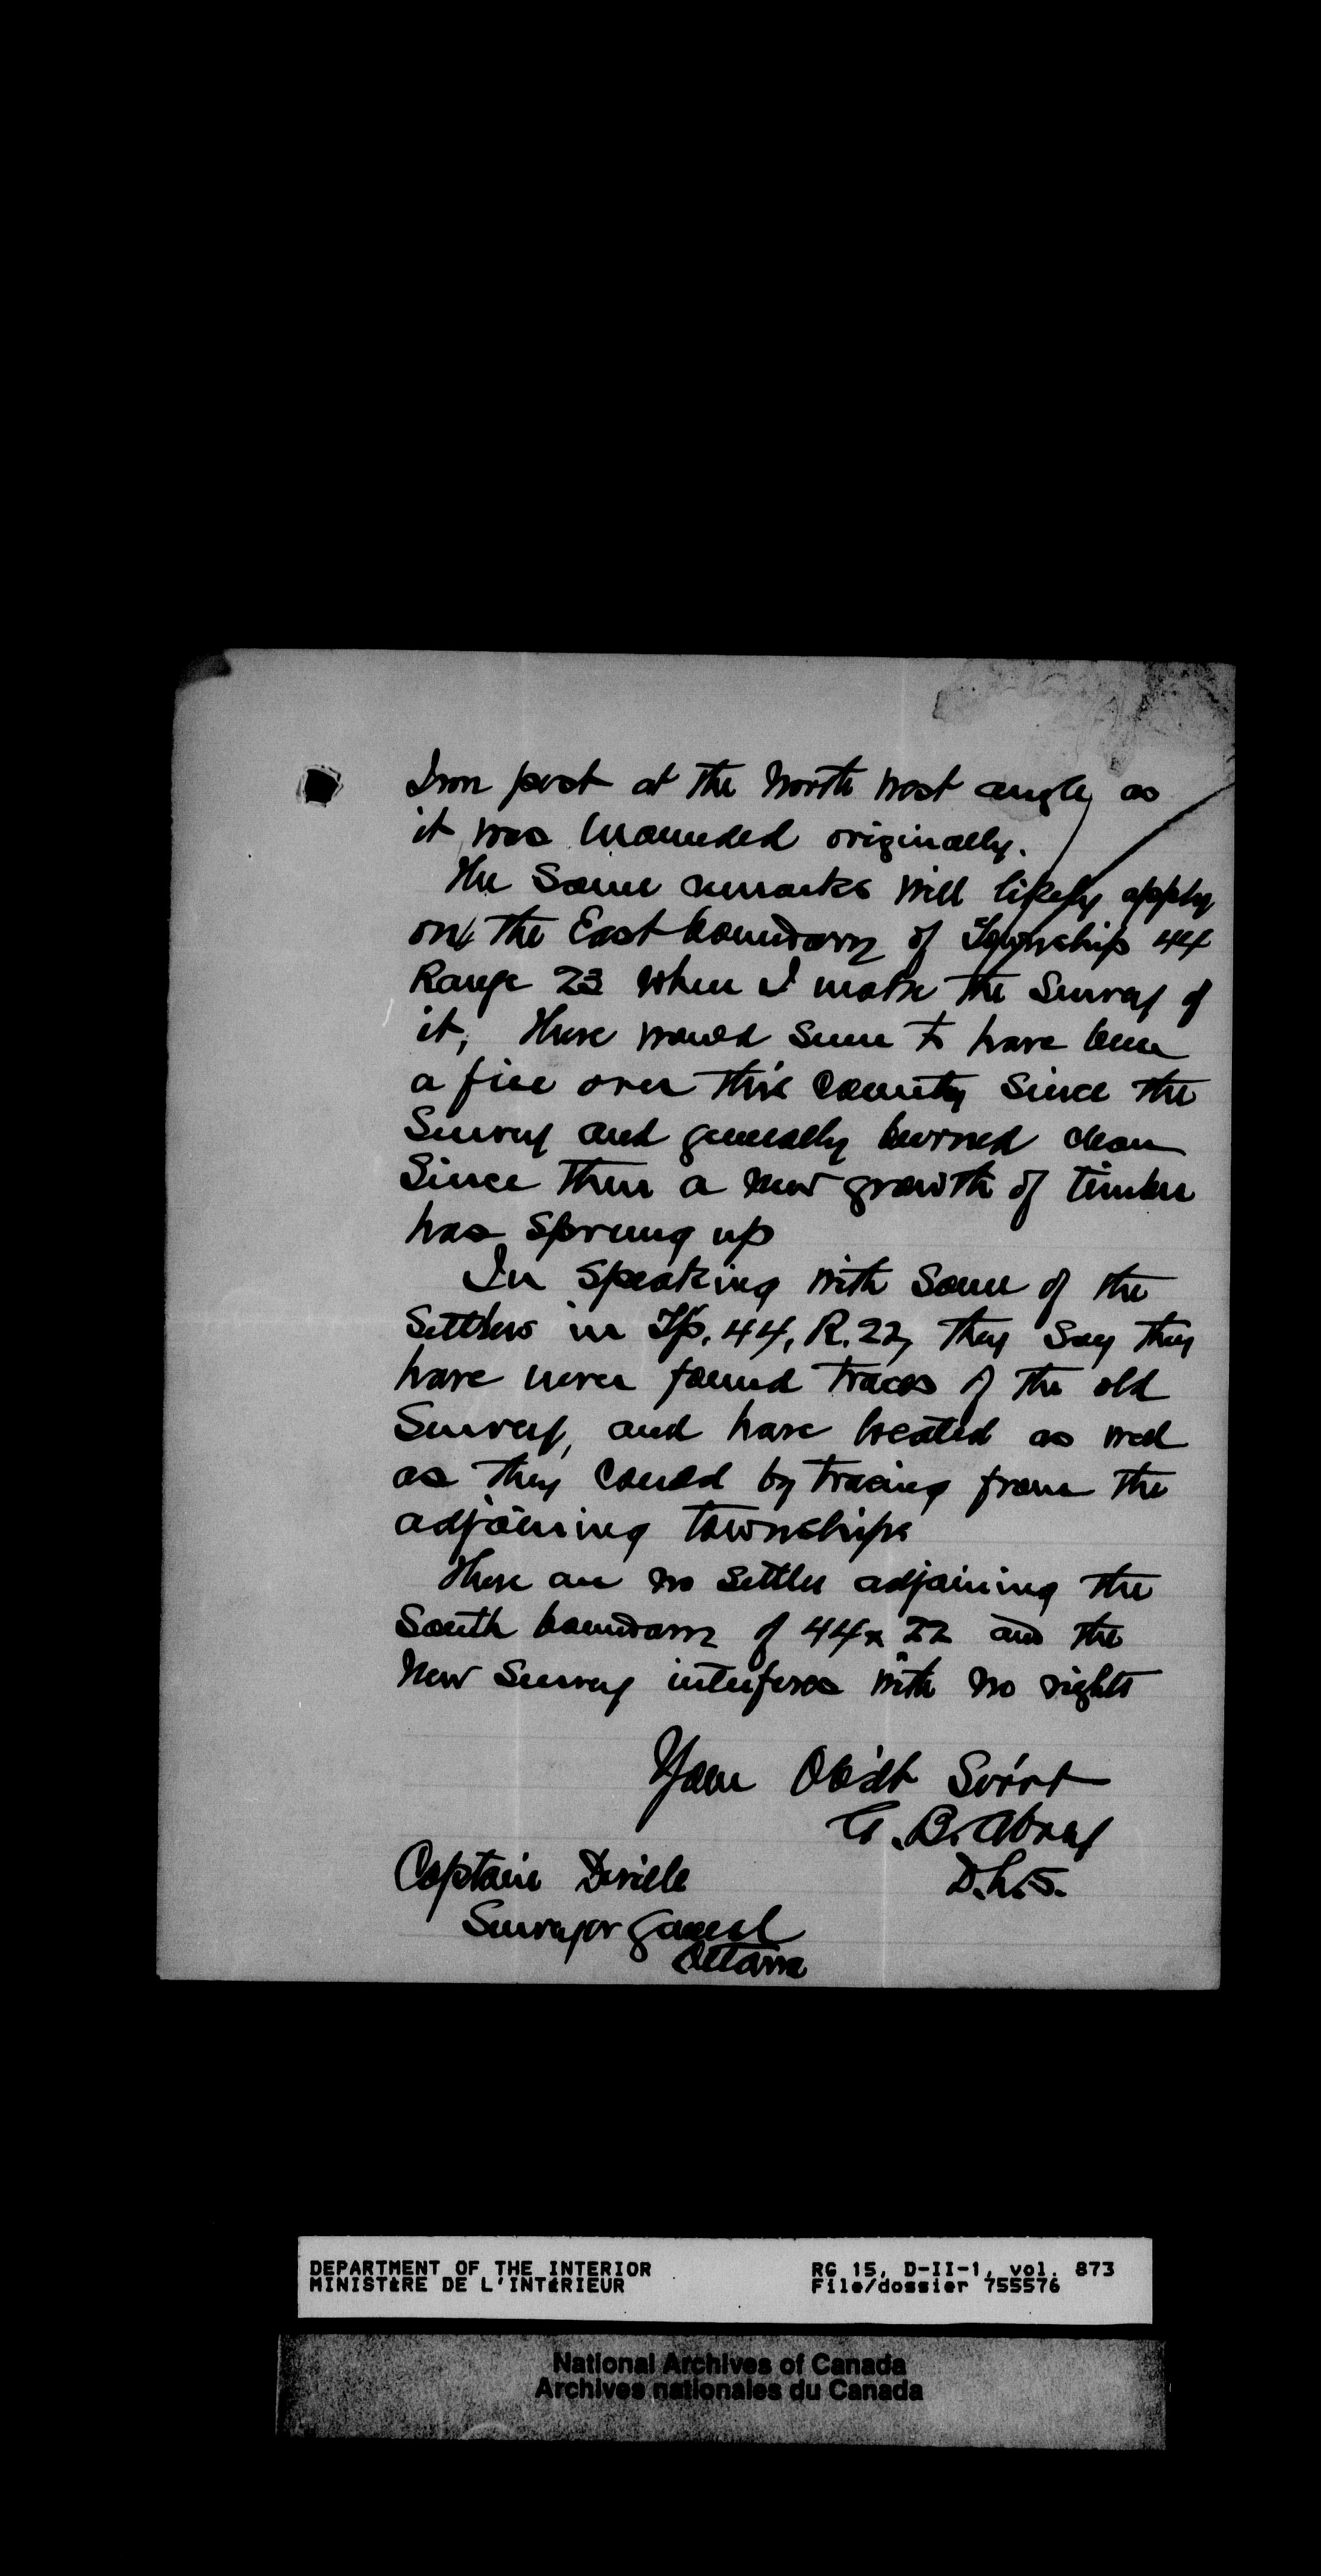 Iron post at the North West angle, as
it was mounded originally.
The same remarks will likely apply
on the East boundary of Township 44
Range 23 when I make the survey of
it, There would seem to have been
a fire over this country since the
survey and generally burned clean
Since then a new growth of timber
has sprung up
In speaking with some of the
settlers in Tp. 44, R. 22, they say they
have never found traces of the old
survey, and have located as well
as they could by tracing from the
adjoining townships
There are no settler adjoining the
South boundary of 44 x 22 and the
New survey interferes with no rights
Your Obdt Servt
G. B. Abrey
D.L.S.
Captain Deville
Surveyor General
Ottawa
DEPARTMENT OF THE INTERIOR
MINISTÈRE DE L'INTÉRIEUR
RG 15, D-II-1, vol. 873
File/dossier 755576
National Archives of Canada
Archives nationales du Canada